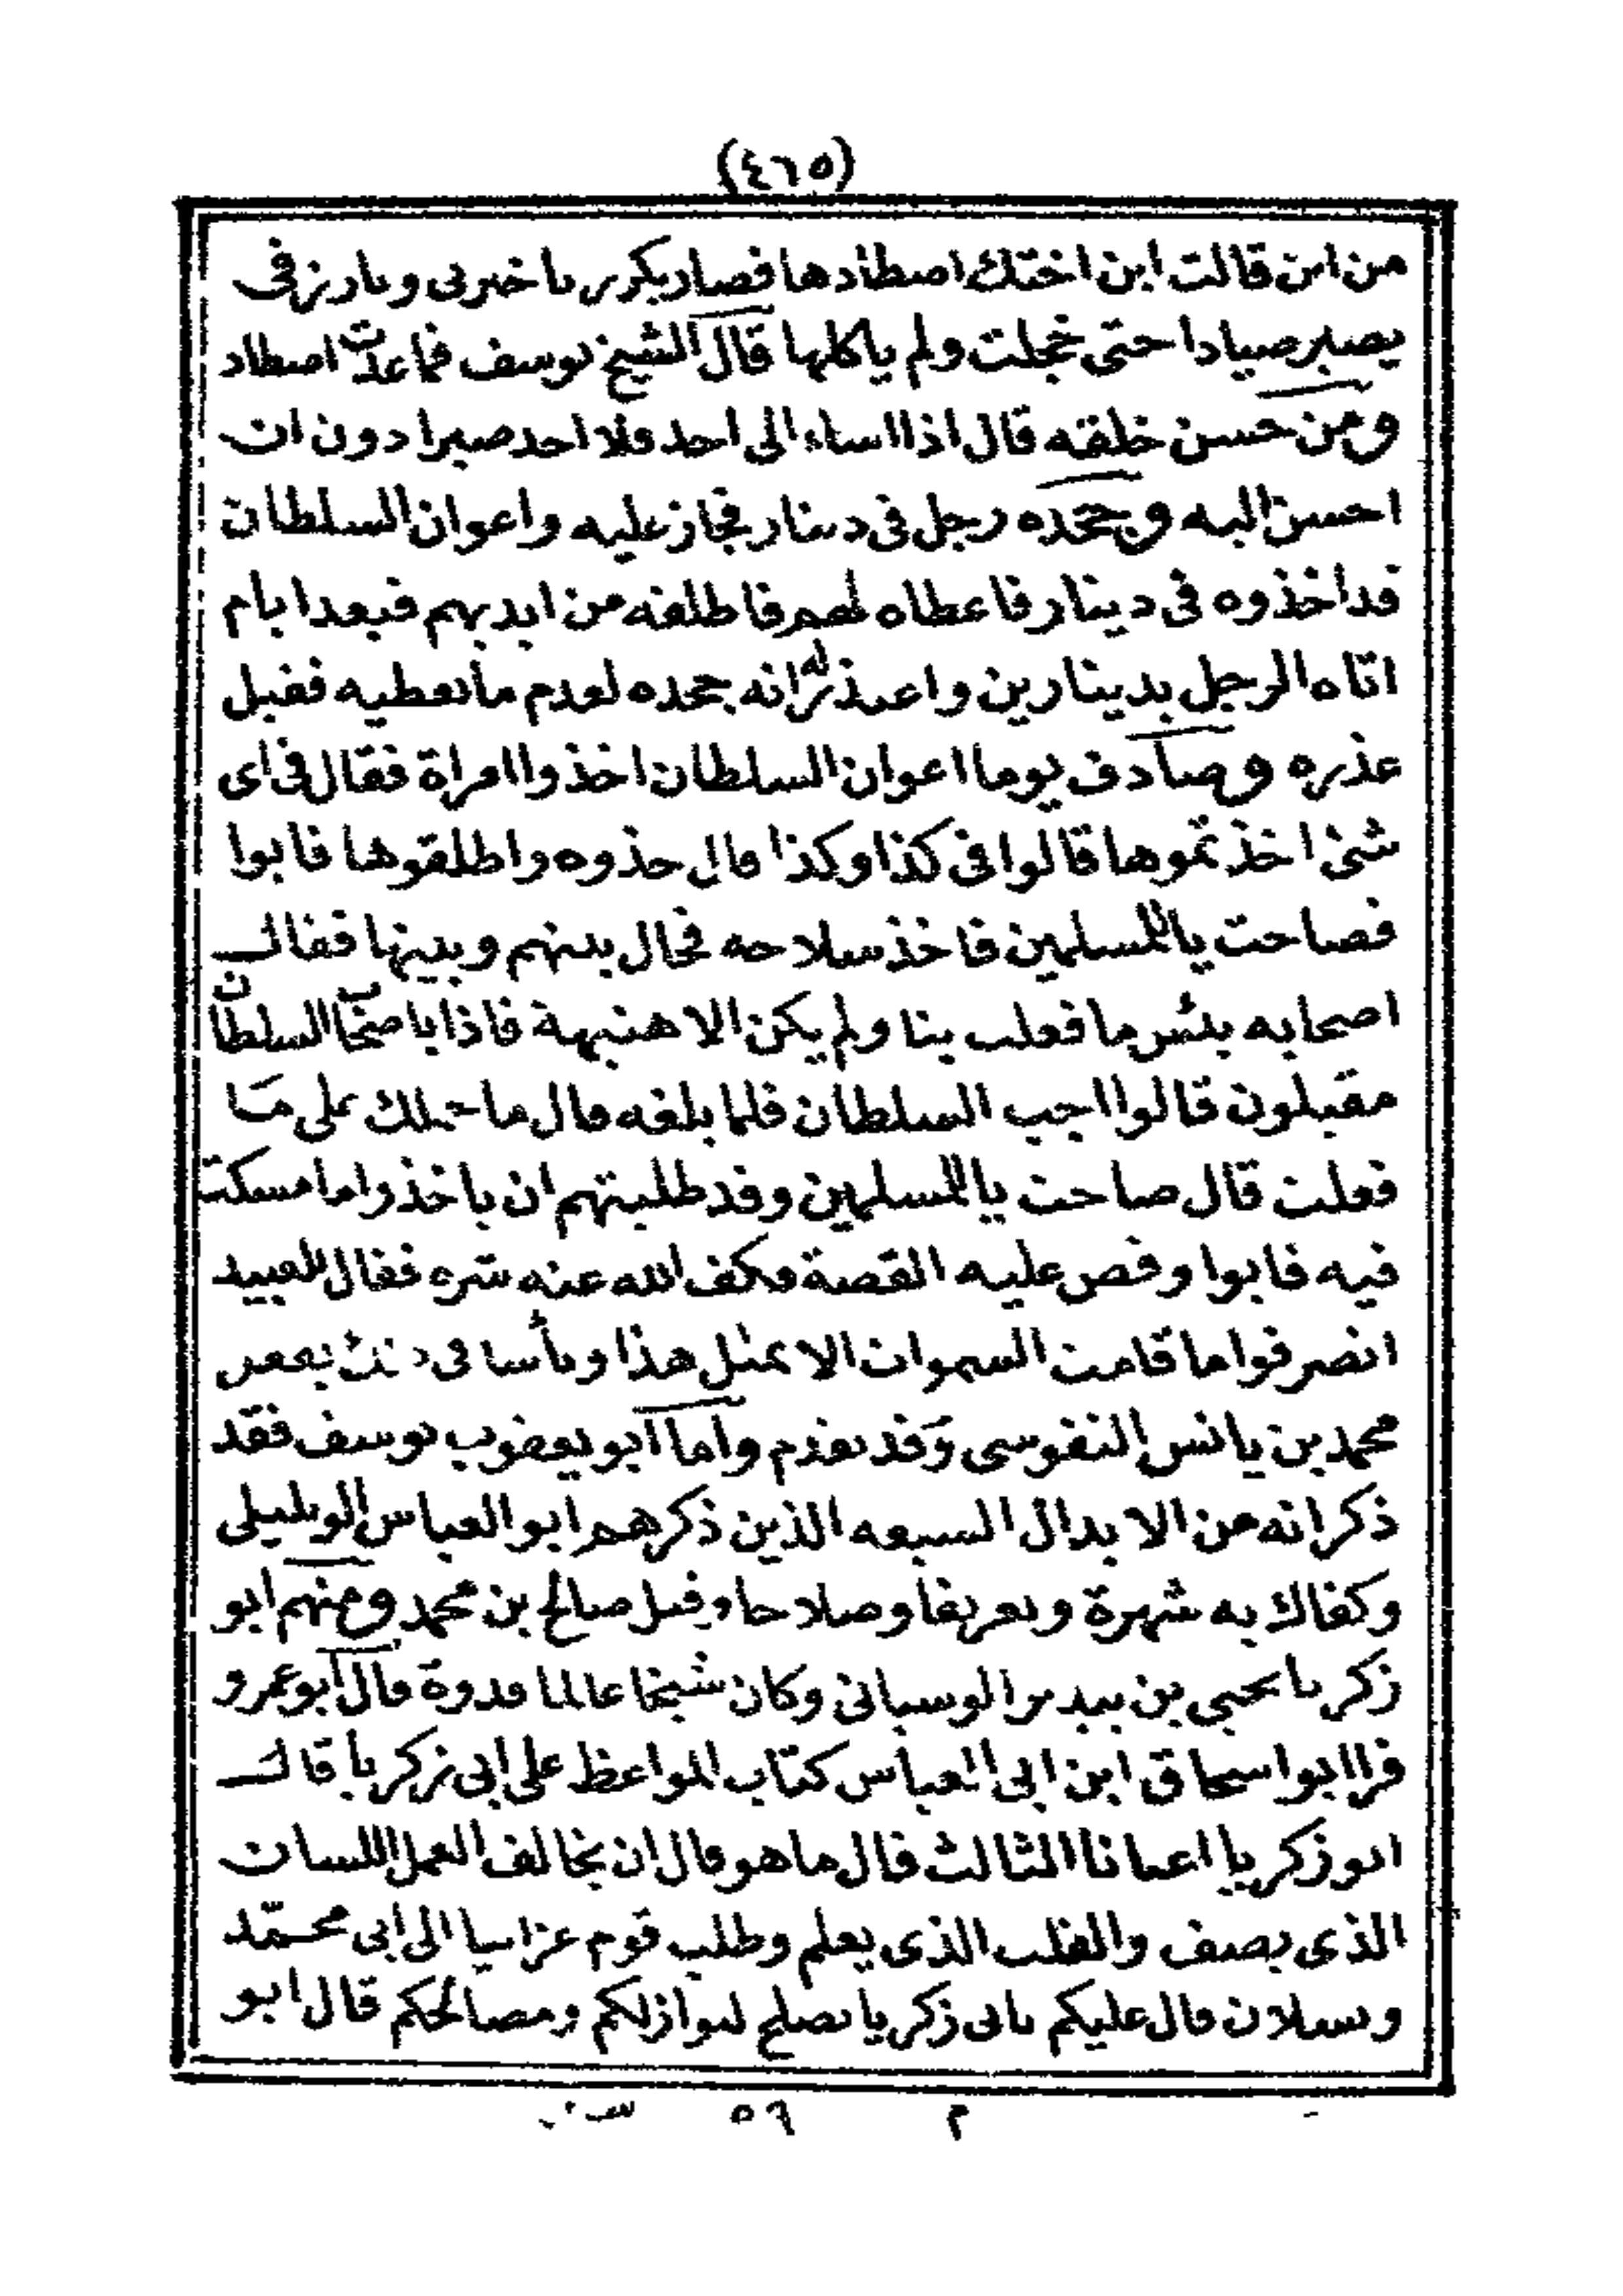 (٤٦٥)
من اين قالت ابن اختك اصطادها فصار يكرر يا خيرتى ويا رزقى
يصير صيادا حتى خجلت ولم ياكلها قال الشيخ يوسف فما عدت اصطاد
ومن حسن خلقه قال اذا اساء الى احد فلا اجد صبرا دون ان
احسن اليه وجحده رجل فى دينار فجاز عليه واعوان السلطان
قد اخذوه فى دينار فاعطاه لهم فاطلقه من ايديهم فبعد ايام
اتاه الرجل بدينارين واعتذر له انه جحده لعدم ما يعطيه فقبل
عذره وصادف يوما اعوان السلطان اخذوا امراة فقال فى اى
شئ اخذتموها قالوا فى كذا وكذا قال خذوه واطلقوها فابوا
فصاحت يا للمسلمين فاخذ سلاحه فحال بينهم وبينها فقال
اصحابه بئس ما فعلت بنا ولم يكن الا هنيهة فاذا باصحاب السلطان
مقبلون قالوا اجب السلطان فلما بلغه قال ما حملك على ما
فعلت قال صاحت يا للمسلمين وقد طلبتهم ان ياخذوا ما امسكت
فيه فابوا وقص عليه القصة فكف الله عنه شره فقال للعبيد
انصرفوا ما قامت السموات الا بمثل هذا وتأسا فى ذلك بعمر
محمد بن يانس النفوسى وقد تقدم واما ابو يعقوب يوسف فقد
ذكر انه من الابدال السبعه الذين ذكرهم ابو العباس الويليلى
وكفاك به شهرة وتعريفا وصلاحا وقيل صالح بن محمد ومنهم ابو
زكريا يحيى بن بيدير الوسيانى وكان شيخا عالما قدوة قال ابو عمرو
قرا ابو اسحاق ابن ابى العباس كتاب المواعظ على ابى زكريا قال
ابو زكريا اعيانا الثالث قال ما هو قال ان يخالف العمل اللسان
الذى يصف والقلب الذى يعلم وطلب قوم عزابيا الى ابى محمّد
ويسلان قال عليكم بابى زكريا يصلح لنوازلكم ومصالحكم قال ابو
م ٥٦